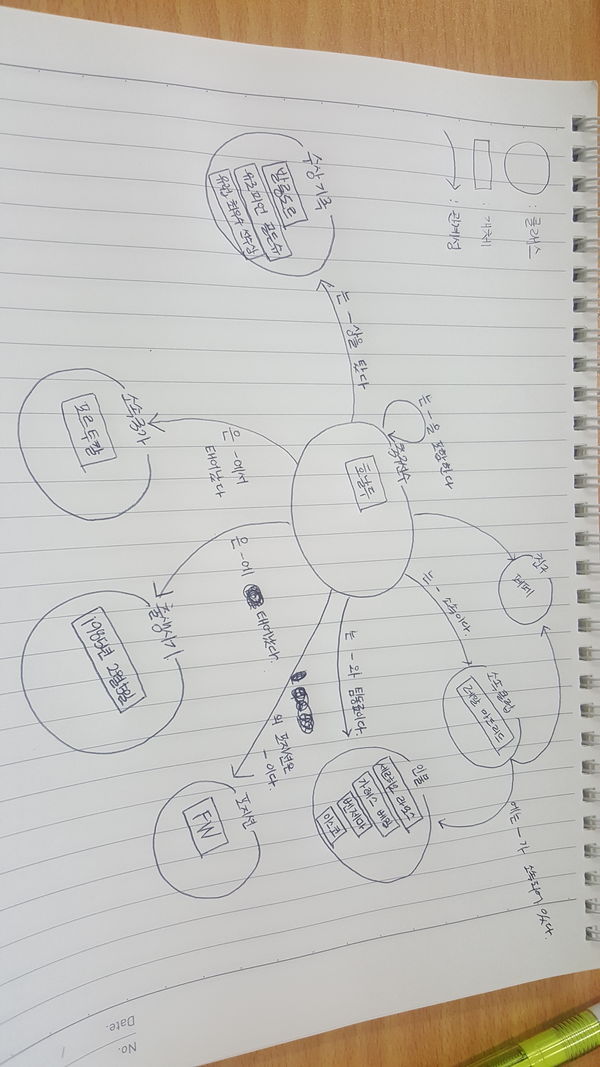 : 클래스
: 개체
: 관계성
수상기록
발롱도르
유로피언 골든슈
는 -상을 탔다
는 -을 포함한다
축구선수
호날두
소속국가
포르투갈
은 -에서
태어났다
친구
페페
는 - 소속이다.
소속클럽
레알 마드리드
출생시기
1985년 2월5일
은 -에
태어났다.
는 -와 팀동료이다.
인물
세르히오 라모스
가레스 베일
벤제마
이스코
에는 -가 소속되어 있다.
의 포지션은
-이다.
포지션
FW
Date.
No.